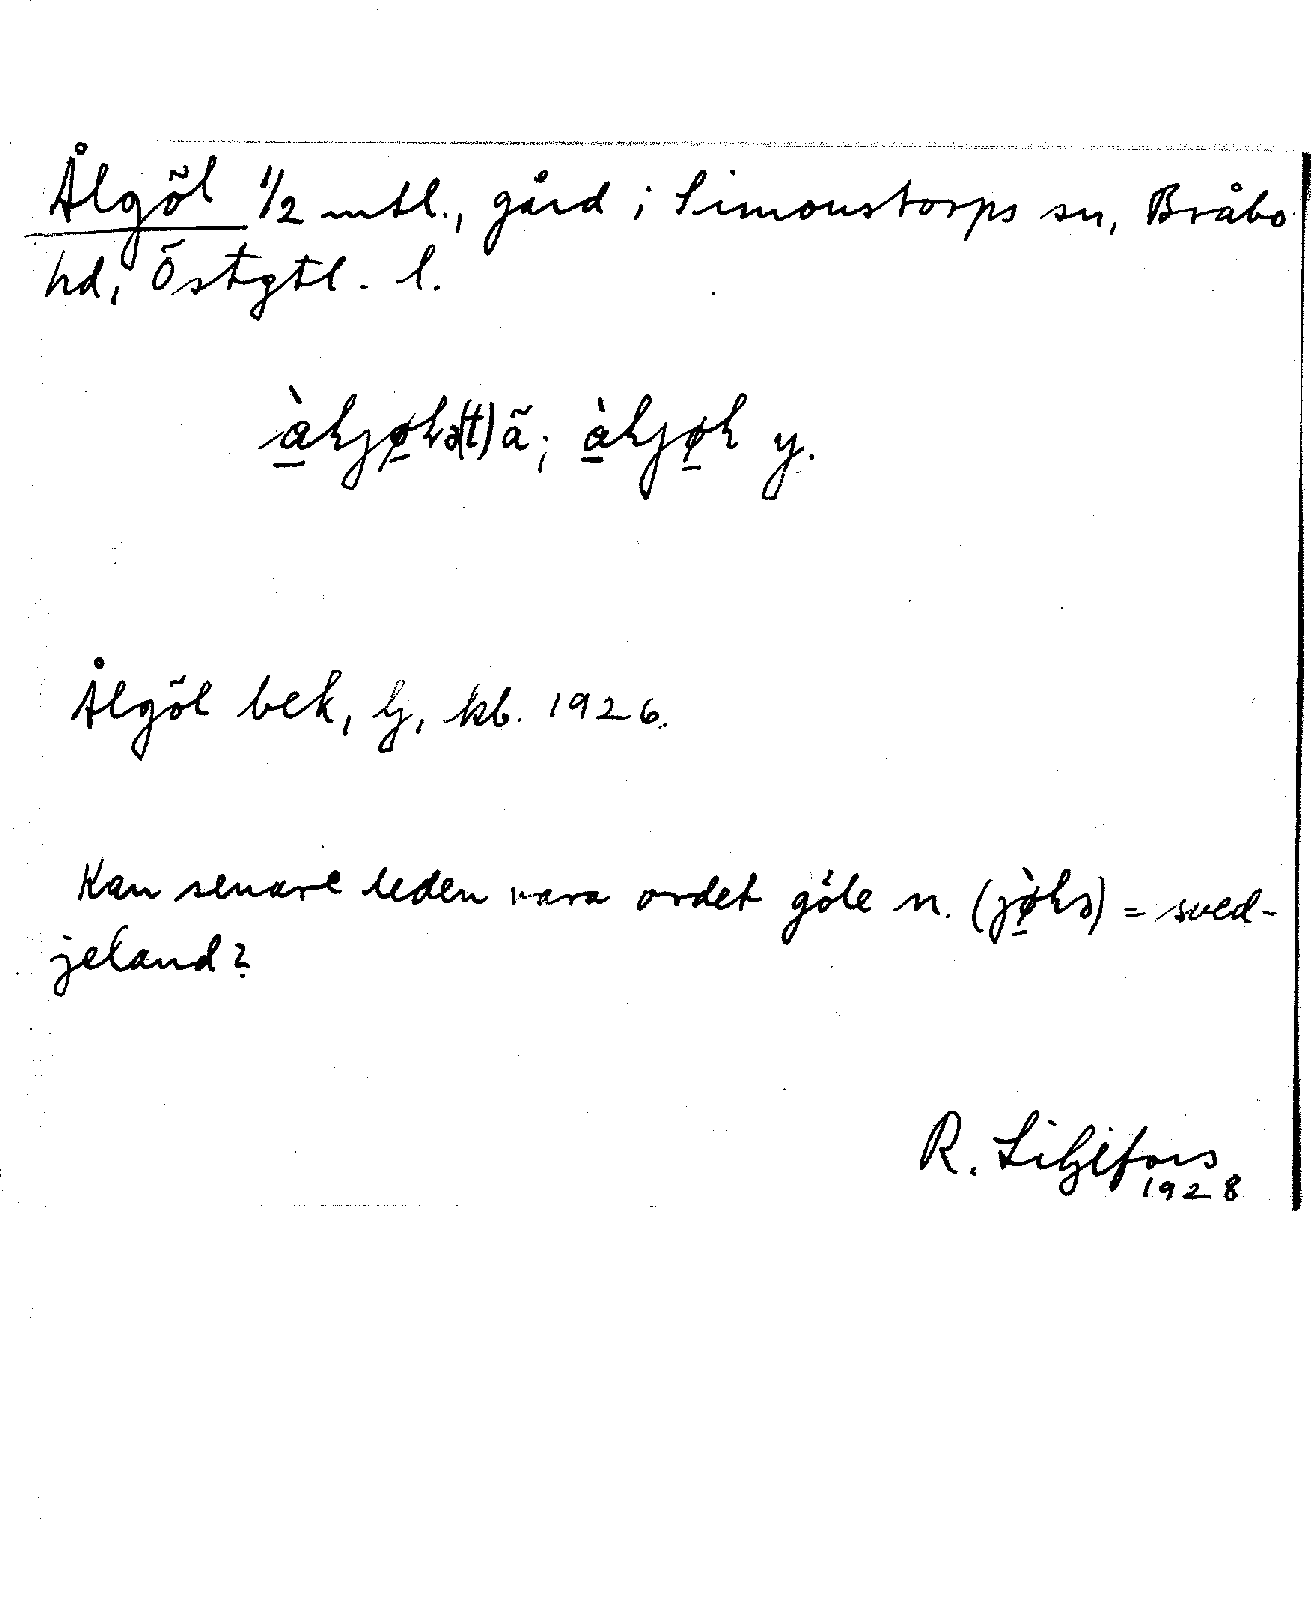 Ålgöl 1/2 mtl., gård i Simonstorps sn, Bråbo
hd, Östgtl. l.
Ålgöl bek, lj, kb. 1926.
Kan senare leden vara ordet göle n. = sved-
jeland?
R. Liljefors
1928